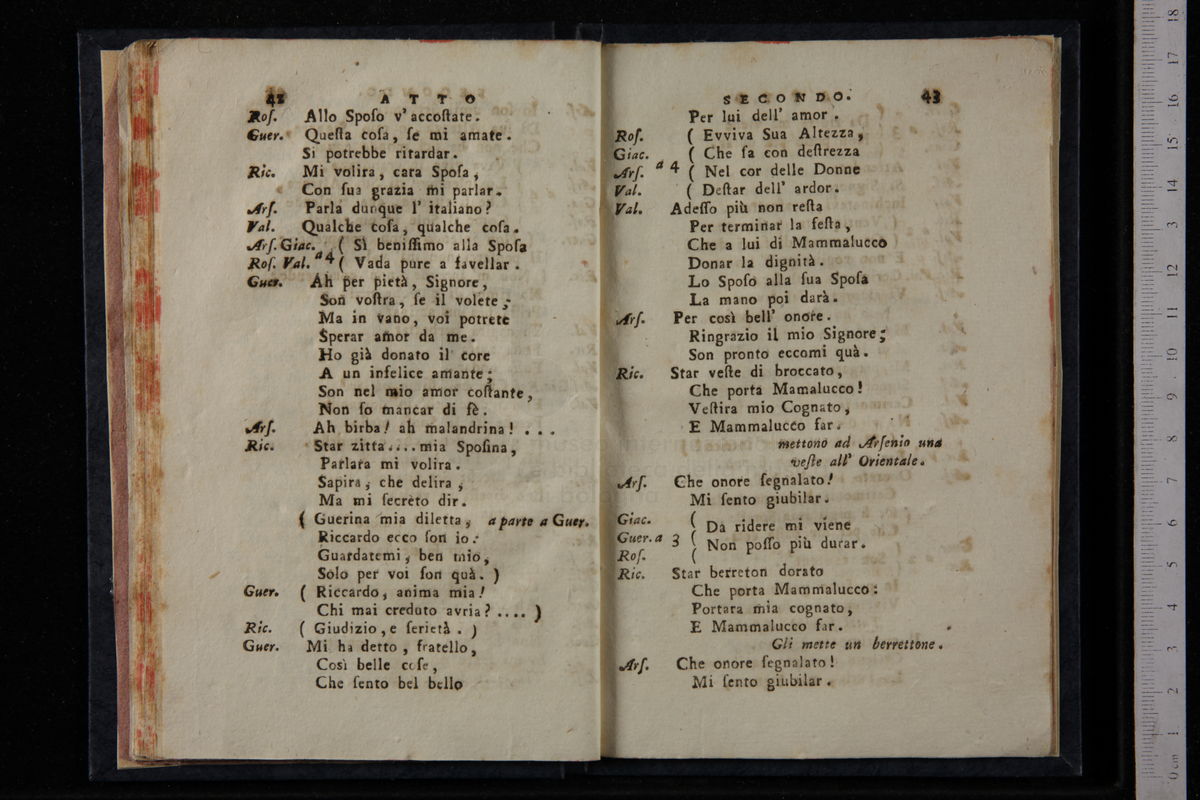 42 ATTO
Roſ. Allo Spoſo v' accoſtate.
Guer. Queſta coſa, ſe mi amate.
Si potrebbe ritardar.
Ric. Mi volira, cara Spoſa,
Con ſua grazia mi parlar.
Arſ. Parla dunque l' italiano?
Val. Qualche coſa, qualche coſa.
Arſ. Giac. ( Sì beniſſimo alla Spoſa
Roſ. Val. a 4 ( Vada pure a favellar.
Guer. Ah per pietà, Signore,
Son voſtra, ſe il volete;
Ma in vano, voi potrete
Sperar amor da me.
Ho già donato il core
A un infelice amante;
Son nel mio amor coſtante,
Non ſo mancar di fè.
Arſ. Ah birba! ah malandrina! ...
Ric. Star zitta.... mia Spoſina,
Parlara mi volira.
Sapira, che delira,
Ma mi ſecreto dir.
( Guerina mia diletta, a parte a Guer.
Riccardo ecco ſon io:
Guardatemi, ben mio,
Solo per voi ſon quà. )
Guer. ( Riccardo, anima mia!
Chi mai creduto avria? .... )
Ric. ( Giudizio, e ſerietà. )
Guer. Mi ha detto, fratello,
Così belle coſe,
Che ſento bel bello
SECONDO. 43
Per lui dell' amor.
Roſ. ( Evviva Sua Altezza,
Giac. ( Che ſa con deſtrezza
Arſ. a 4 ( Nel cor delle Donne
Val. ( Deſtar dell' ardor.
Val. Adeſſo più non reſta
Per terminar la feſta,
Che a lui di Mammalucco
Donar la dignità.
Lo Spoſo alla ſua Spoſa
La mano poi darà.
Arſ. Per così bell' onore.
Ringrazio il mio Signore;
Son pronto eccomi quà.
Ric. Star veſte di broccato,
Che porta Mamalucco!
Veſtira mio Cognato,
E Mammalucco far.
mettono ad Arſenio una
veſte all' Orientale.
Arſ. Che onore ſegnalato!
Mi ſento giubilar.
Giac. (
Da ridere mi viene
Guer. a 3 (
Non poſſo più durar.
Roſ. (
Ric. Star berreton dorato
Che porta Mammalucco:
Portara mia cognato,
E Mammalucco far.
Gli mette un berrettone.
Arſ. Che onore ſegnalato!
Mi ſento giubilar.
0 cm 1 2 3 4 5 6 7 8 9 10 11 12 13 14 15 16 17 18